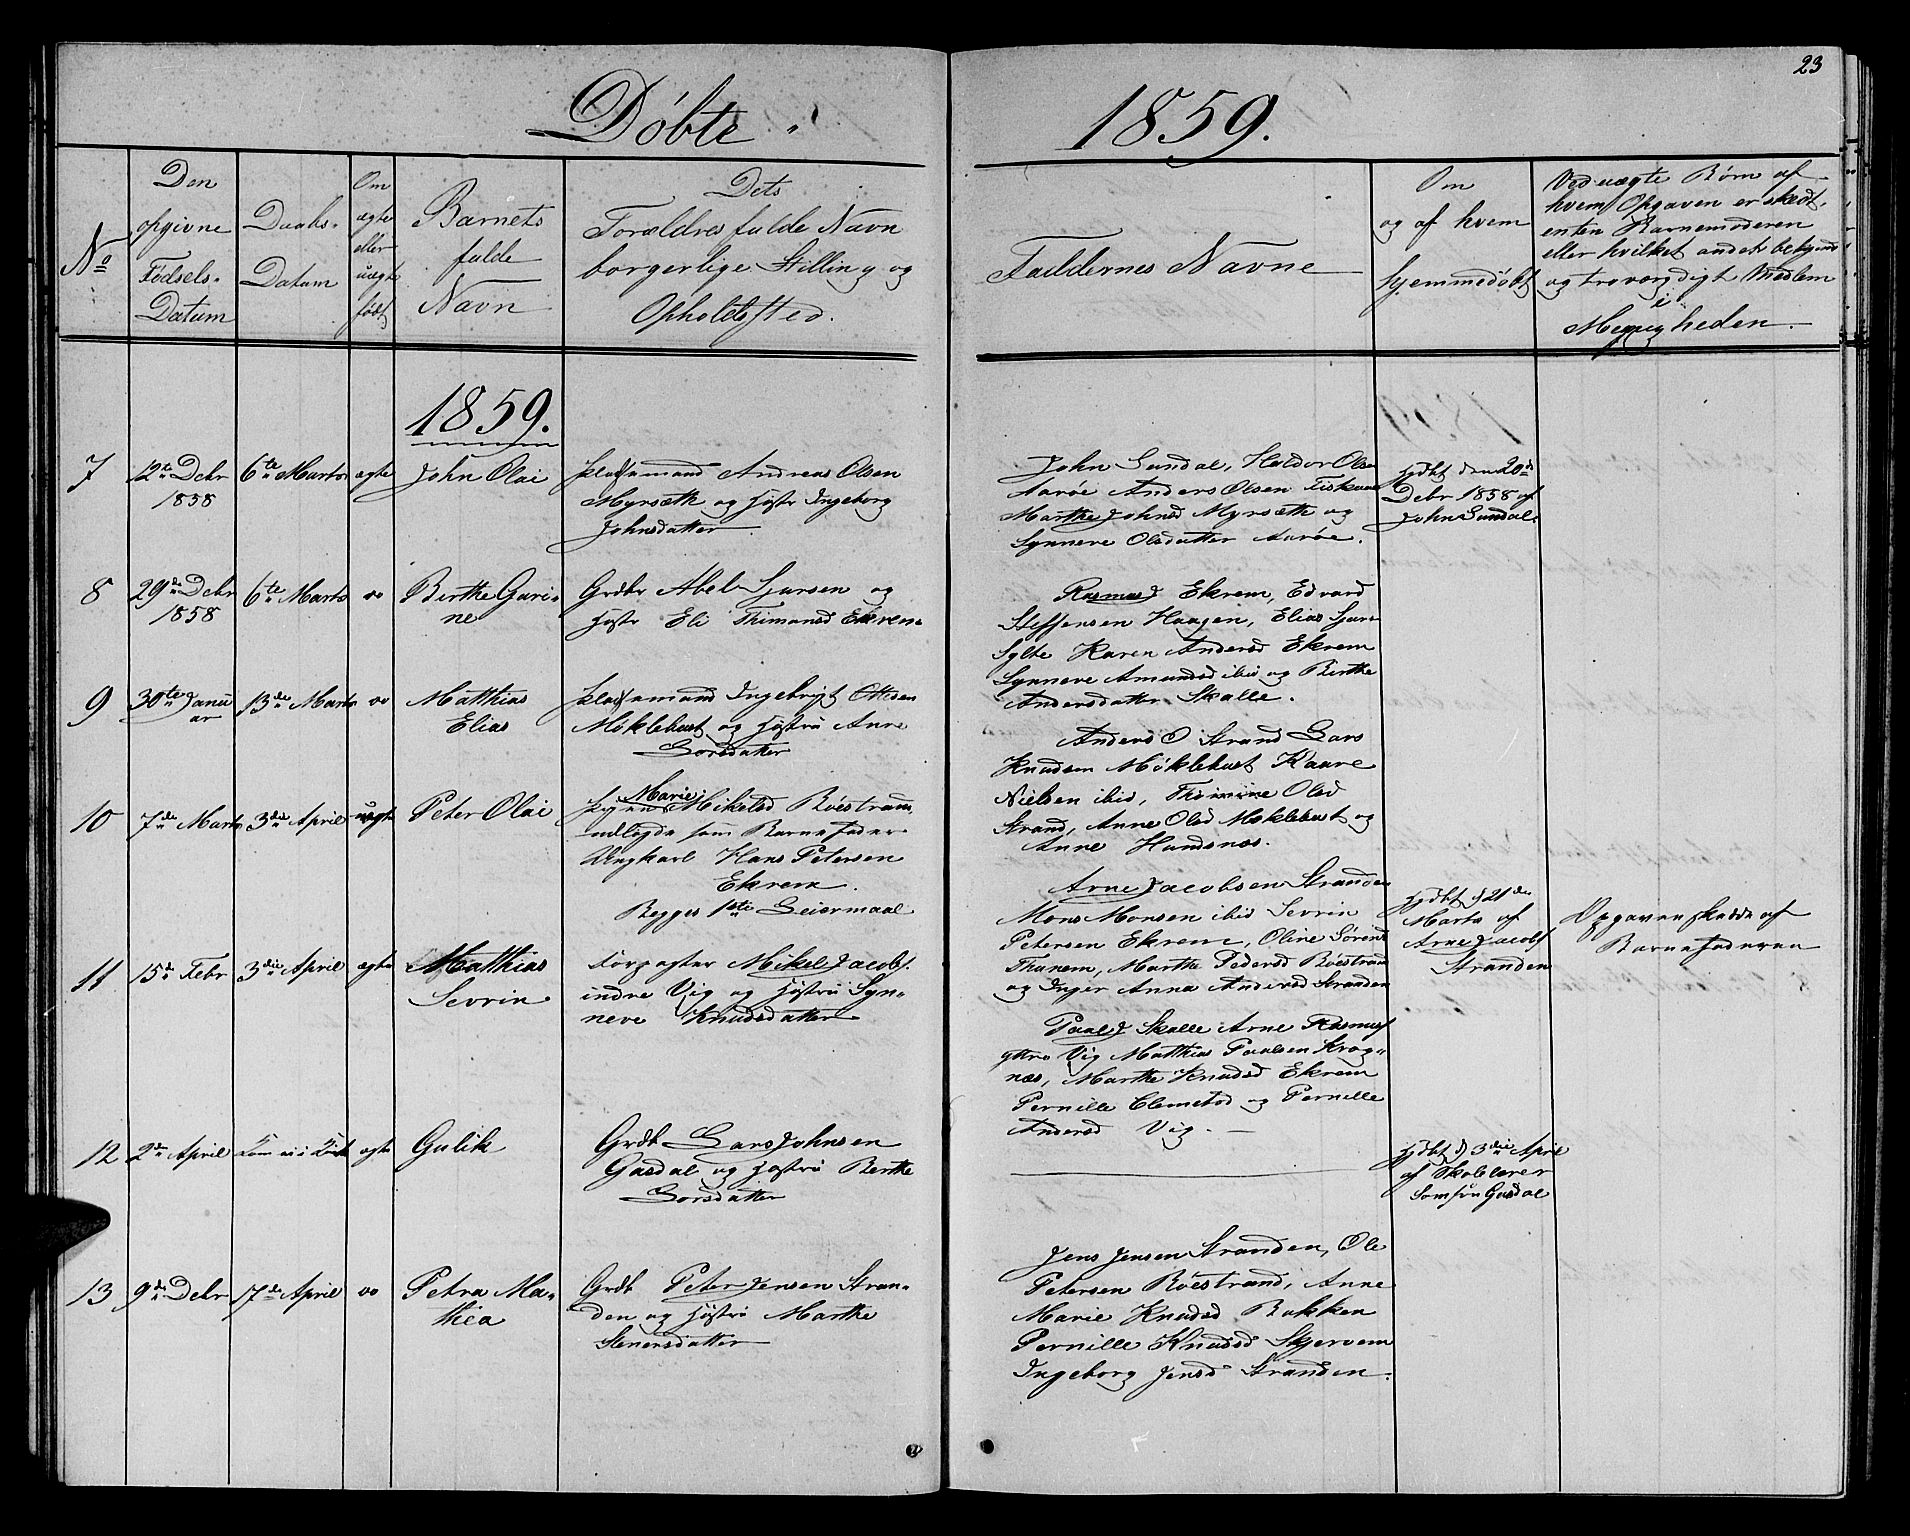 23
Døbte
1859.
No
Den
opgivne
Fødsels-
Datum
Daabs-
Datum
Om
ægte
eller
uægte
født
Barnets
fulde
Navn
Dets
Forældres fulde Navn
borgerlige Stilling og
Opholdssted.
Faddernes Navne
Om
og af hvem
hjemmedøbt
Ved uægte Børn af
hvem Opgaven er skedt,
enten Barnemoderen
eller hvilket andet bekjendt
og troværdigt Medlem
i
Menigheden.
1859.
7
12te Debr
1858
6te Marts
ægte
John Olai
Pladsemand Andreas Olsen
Myrsæth og Hustr Ingeborg
Johnsdatter
John Sundal, Haldor Olsen
Aarøe Anders Olsen Eiskrem
Marthe Johnsd Myrsæth og
Synneve Olsdatter Aarøe.
hjdbt den 20de
Debr 1858 af
John Sundal.
8
29de Debr
1858
6te Marts
Berthe Guri-
ne
Grdbr Abel Sjursen og
Hustr Eli Thimansd Ekrem.
Rasmus J Ekrem, Edvard
Steffensen Haagen, Elias Sjurs
Sylte Karen Andersd Ekrem
Synneve Amundsd ibid og Birthe
Andersdatter Skalle.
9
30te Janu
ar
13de Marts
Matthias
Elias
Pladsemand Ingebrigt Ottesen
Möklebust og Hustru Anne
Larsdatter
Anders O Strand Lars
Knudsen Möklebust Kaare
Nielsen ibid, Thimine Olsd
Strand, Anne Olsd Möklebust og
Anne Hundsnæs.
10
7de Marts
3die April
uægte
Peter Olai
Marie
Pigen Mikelsd Röestrand
udlagde som Barnefader
Ungkarl Hans Petersen
Ekrem.
Begges 1ste Leiermaal
Arne Jacobsen Stranden
Mons Monsen ibid Sevrin
Petersen Ekrem, Oline Sörensd
Thunem, Marthe Pedersd Röestrand
og Inger Anna Andersd Stranden
hjdbt d 21de
Marts af
Arne Jacobs
Stranden
Opgaven skedde af
Barnefaderen
11
15de Febr
3die April
ægte
Matthias
Sevrin
Forpagter Mikel Jacobs.
indre Vig og Hustru Syn-
neve Knudsdatter
Paal J Skalle Arne Rasmus
yttre Vig Matthias Paulsen Krog-
næs, Marthe Knudsd Ekrem
Pernille Clemetsd og Pernille
Andersd Vig.
12
2den April
Kom ei i Kirk
ægte
Gulik
Grdb Lars Johnsen
Gasdal og Hustru Berthe
Larsdatter
hjdbt d 3die April
af Skolelærer
Samson Gasdal
13
9de Debr
17de April
Petra Ma-
thea
Grdb Peter Jensen Stran-
den og Hustru Marthe
Stenersdatter
Jens Jensen Stranden, Ole
Petersen Röestrand, Anne
Marie Knudsd Bakken
Pernille Knudsd Skjervem
Ingeborg Jensd Stranden.